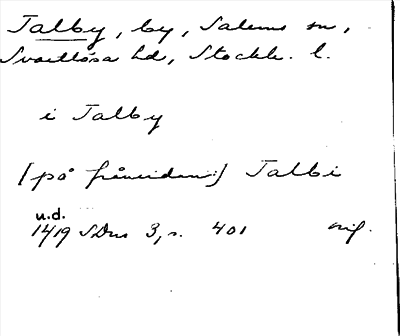 Talby, by, Salems sn,
Svartlösa hd, Stockh. l.
i Talby
[på frånsidan:] Talbi
u.d.
1419 SDns 3, s. 401 orig.